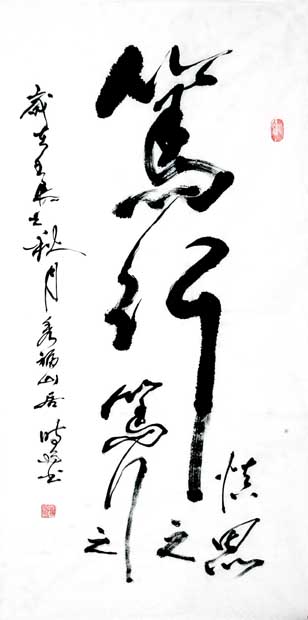 篤行
慎思之
篤行之
歲在壬辰之秋月 山居 時 書